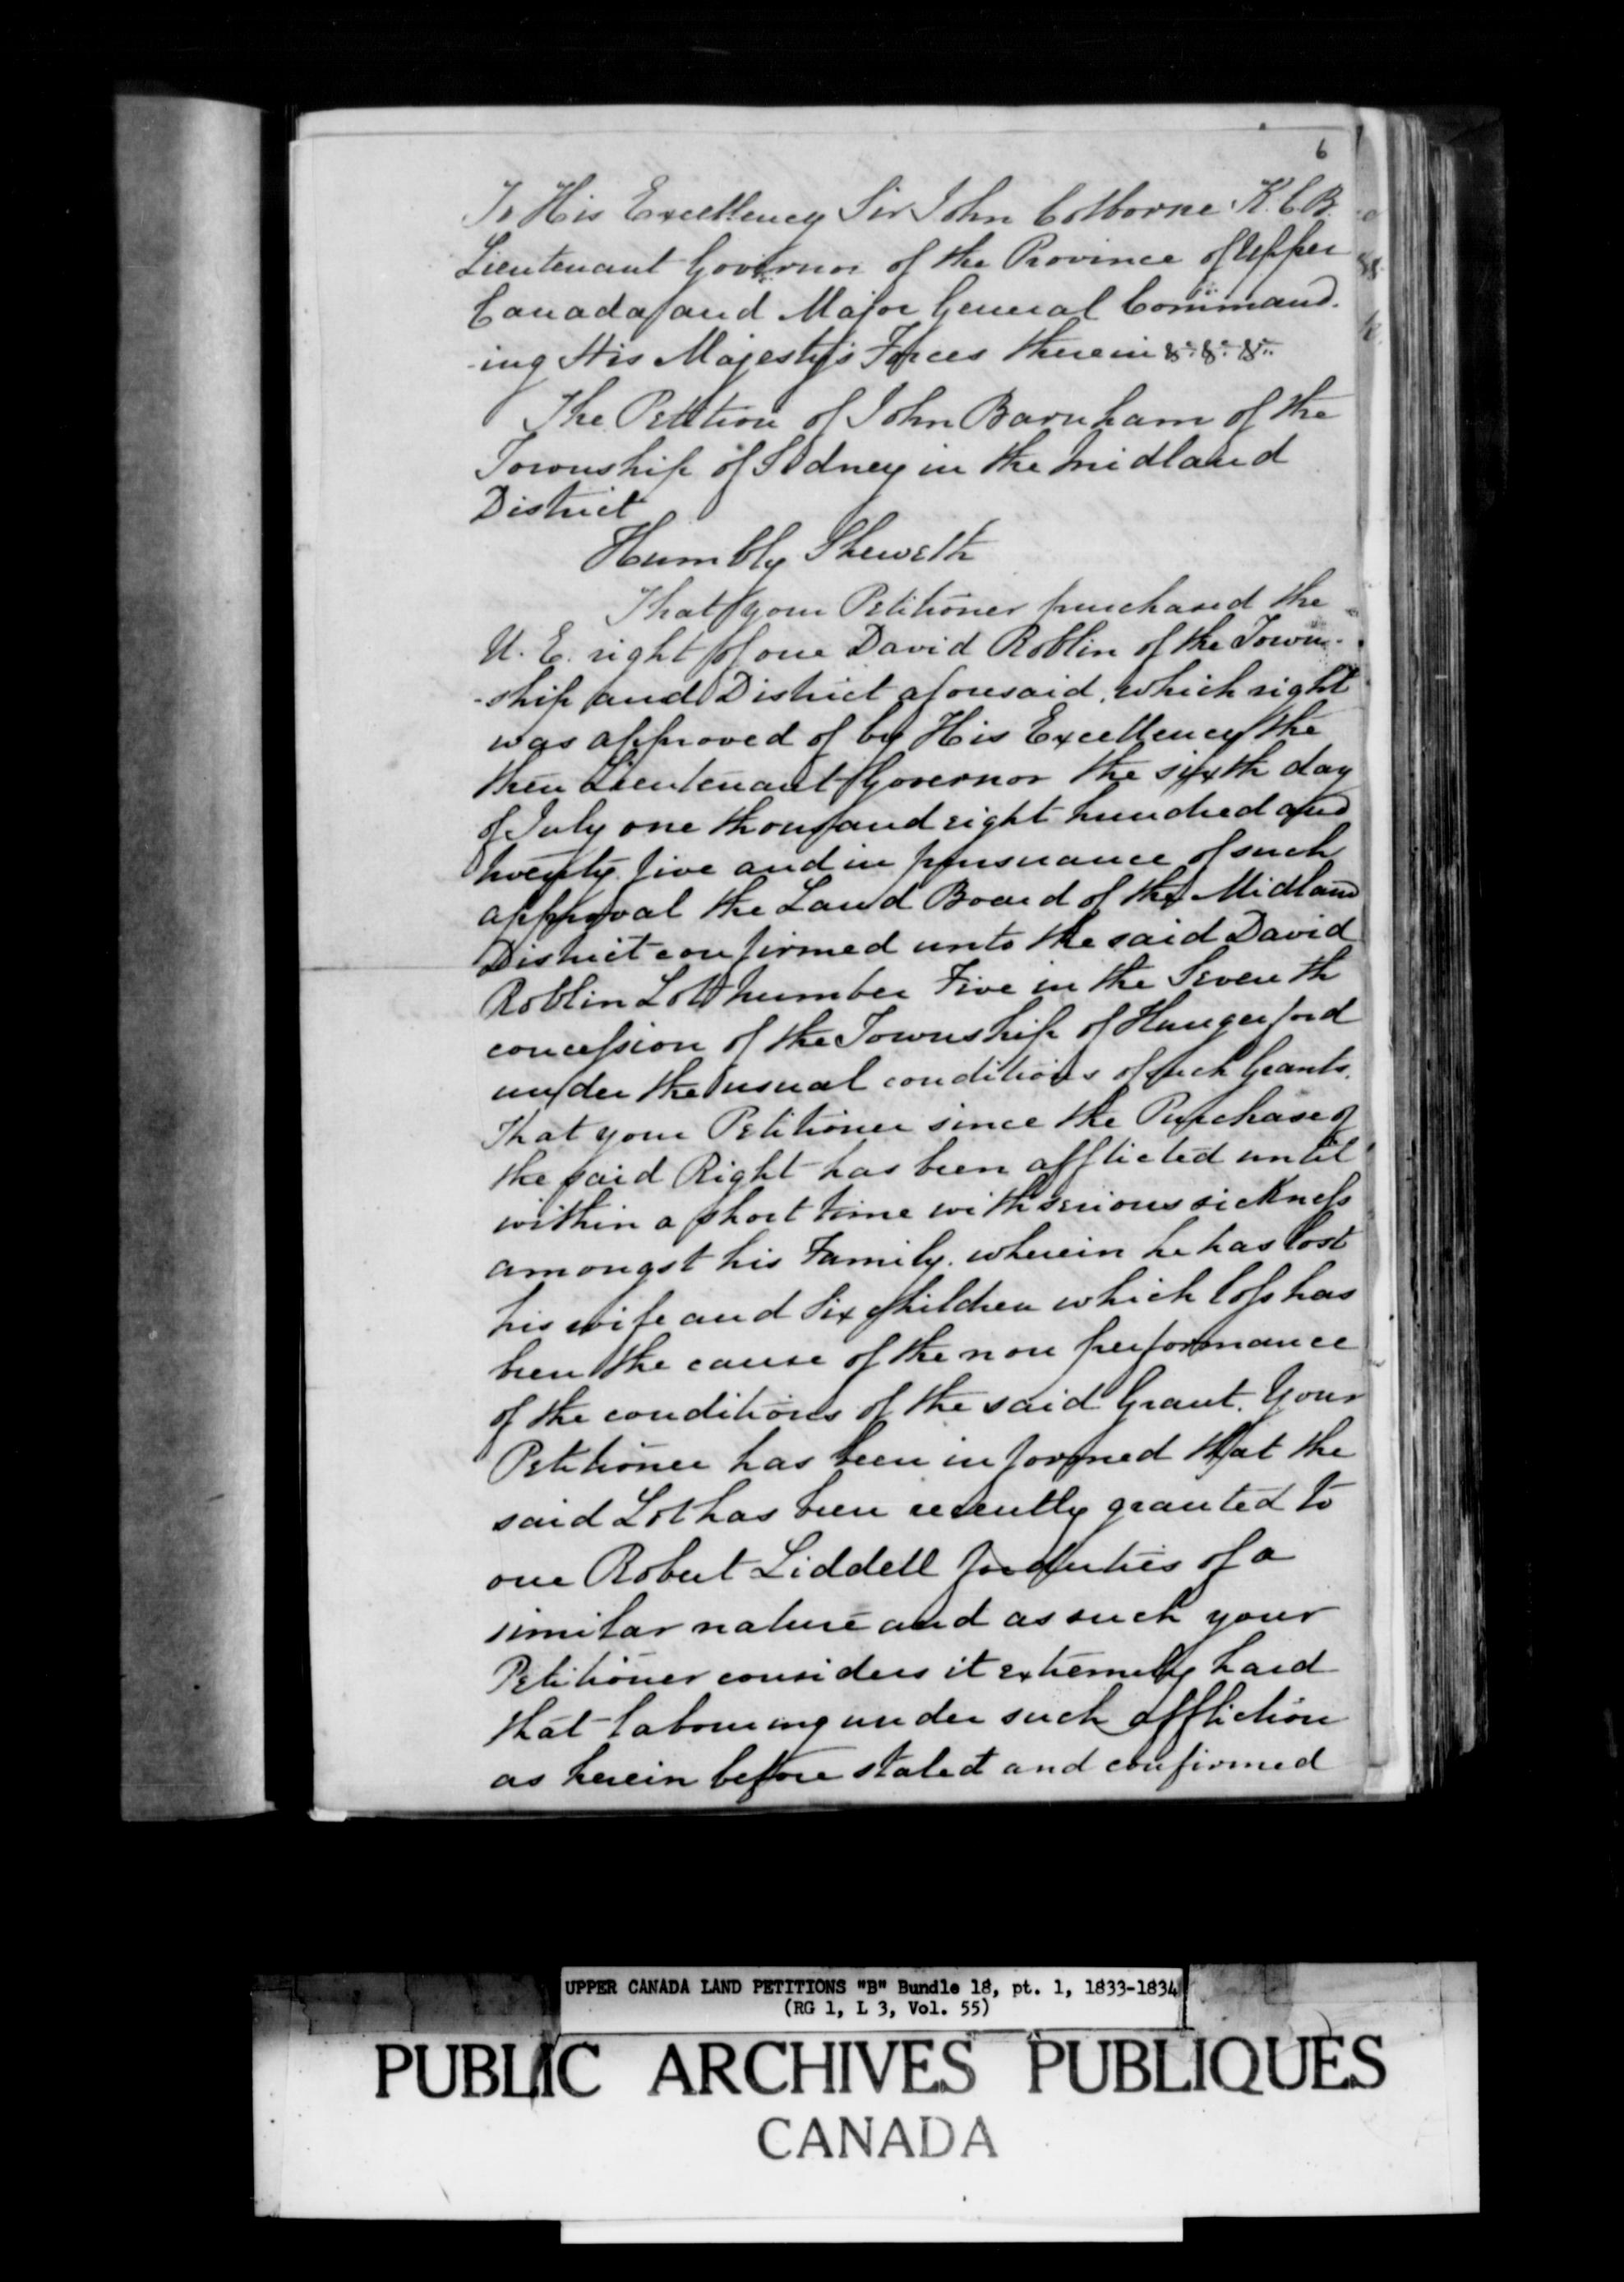 6
To His Excellency Sir John Colborne K.C.B.
Lieutenant Governor of the Province of Upper
Canada and Major General Command-
-ing His Majesty's Forces therein &c. &c. &c.
The Petition of John Barnham of the
Township of Sidney in the Midland
District
Humbly Sheweth
That your Petitioner purchased the
U. E. right of one David Roblin of the Town-
-ship and District aforesaid, which right
was approved of by His Excellency the
then Lieutenant Governor the sixth day
of July one thousand eight hundred and
twenty five and in pursuance of such
approval the Land Board of the Midland
District confirmed unto the said David
Roblin Lot number Five in the Seventh
concession of the Township of Hungerford
under the usual conditions of such Grants.
That your Petitioner since the Purchase of
the said Right has been afflicted until
within a short time with serious sickness
amongst his Family. wherein he has lost
his wife and Six Children which loss has
been the cause of the non performance
of the conditions of the said Grant. Your
Petitioner has been informed that the
said Lot has been recently granted to
one Robert Liddell for duties of a
similar nature and as such your
Petitioner considers it extremely hard
that labouring under such affliction
as herein before stated and confirmed
UPPER CANADA LAND PETITIONS "B" Bundle 18, pt. 1, 1833-1834
(RG 1, L 3, Vol. 55)
PUBLIC ARCHIVES PUBLIQUES
CANADA